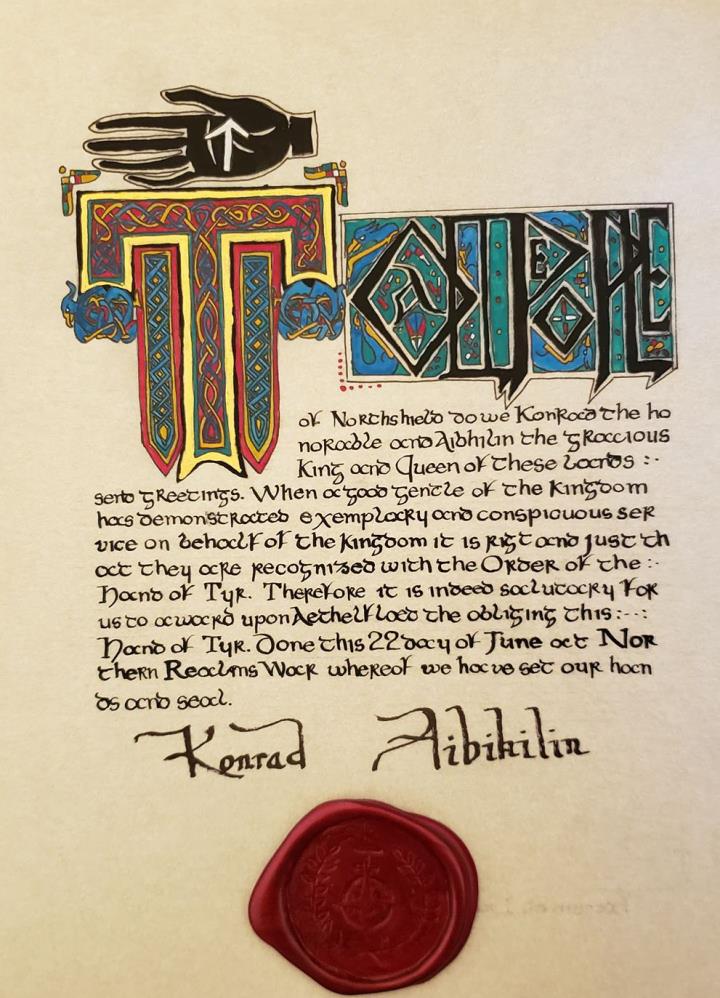 To all people
of Northshield do we Konrad the ho
norable and Aibhilin the gracious
King and Queen of these lands :·
send greetings. When a good gentle of the kingdom
has demonstrated exemplary and conspicuous ser
vice on behalf of the kingdom it is right and just th
at they are recognized with the Order of the :·
Hand of Tyr. Therefore it is indeed salutary for
us to award upon Aethelflaed the obliging this :··:
Hand of Tyr. Done this 22 day of June at Nor
thern Realms War whereof we have set our han
ds and seal.
Konrad Aibihilin